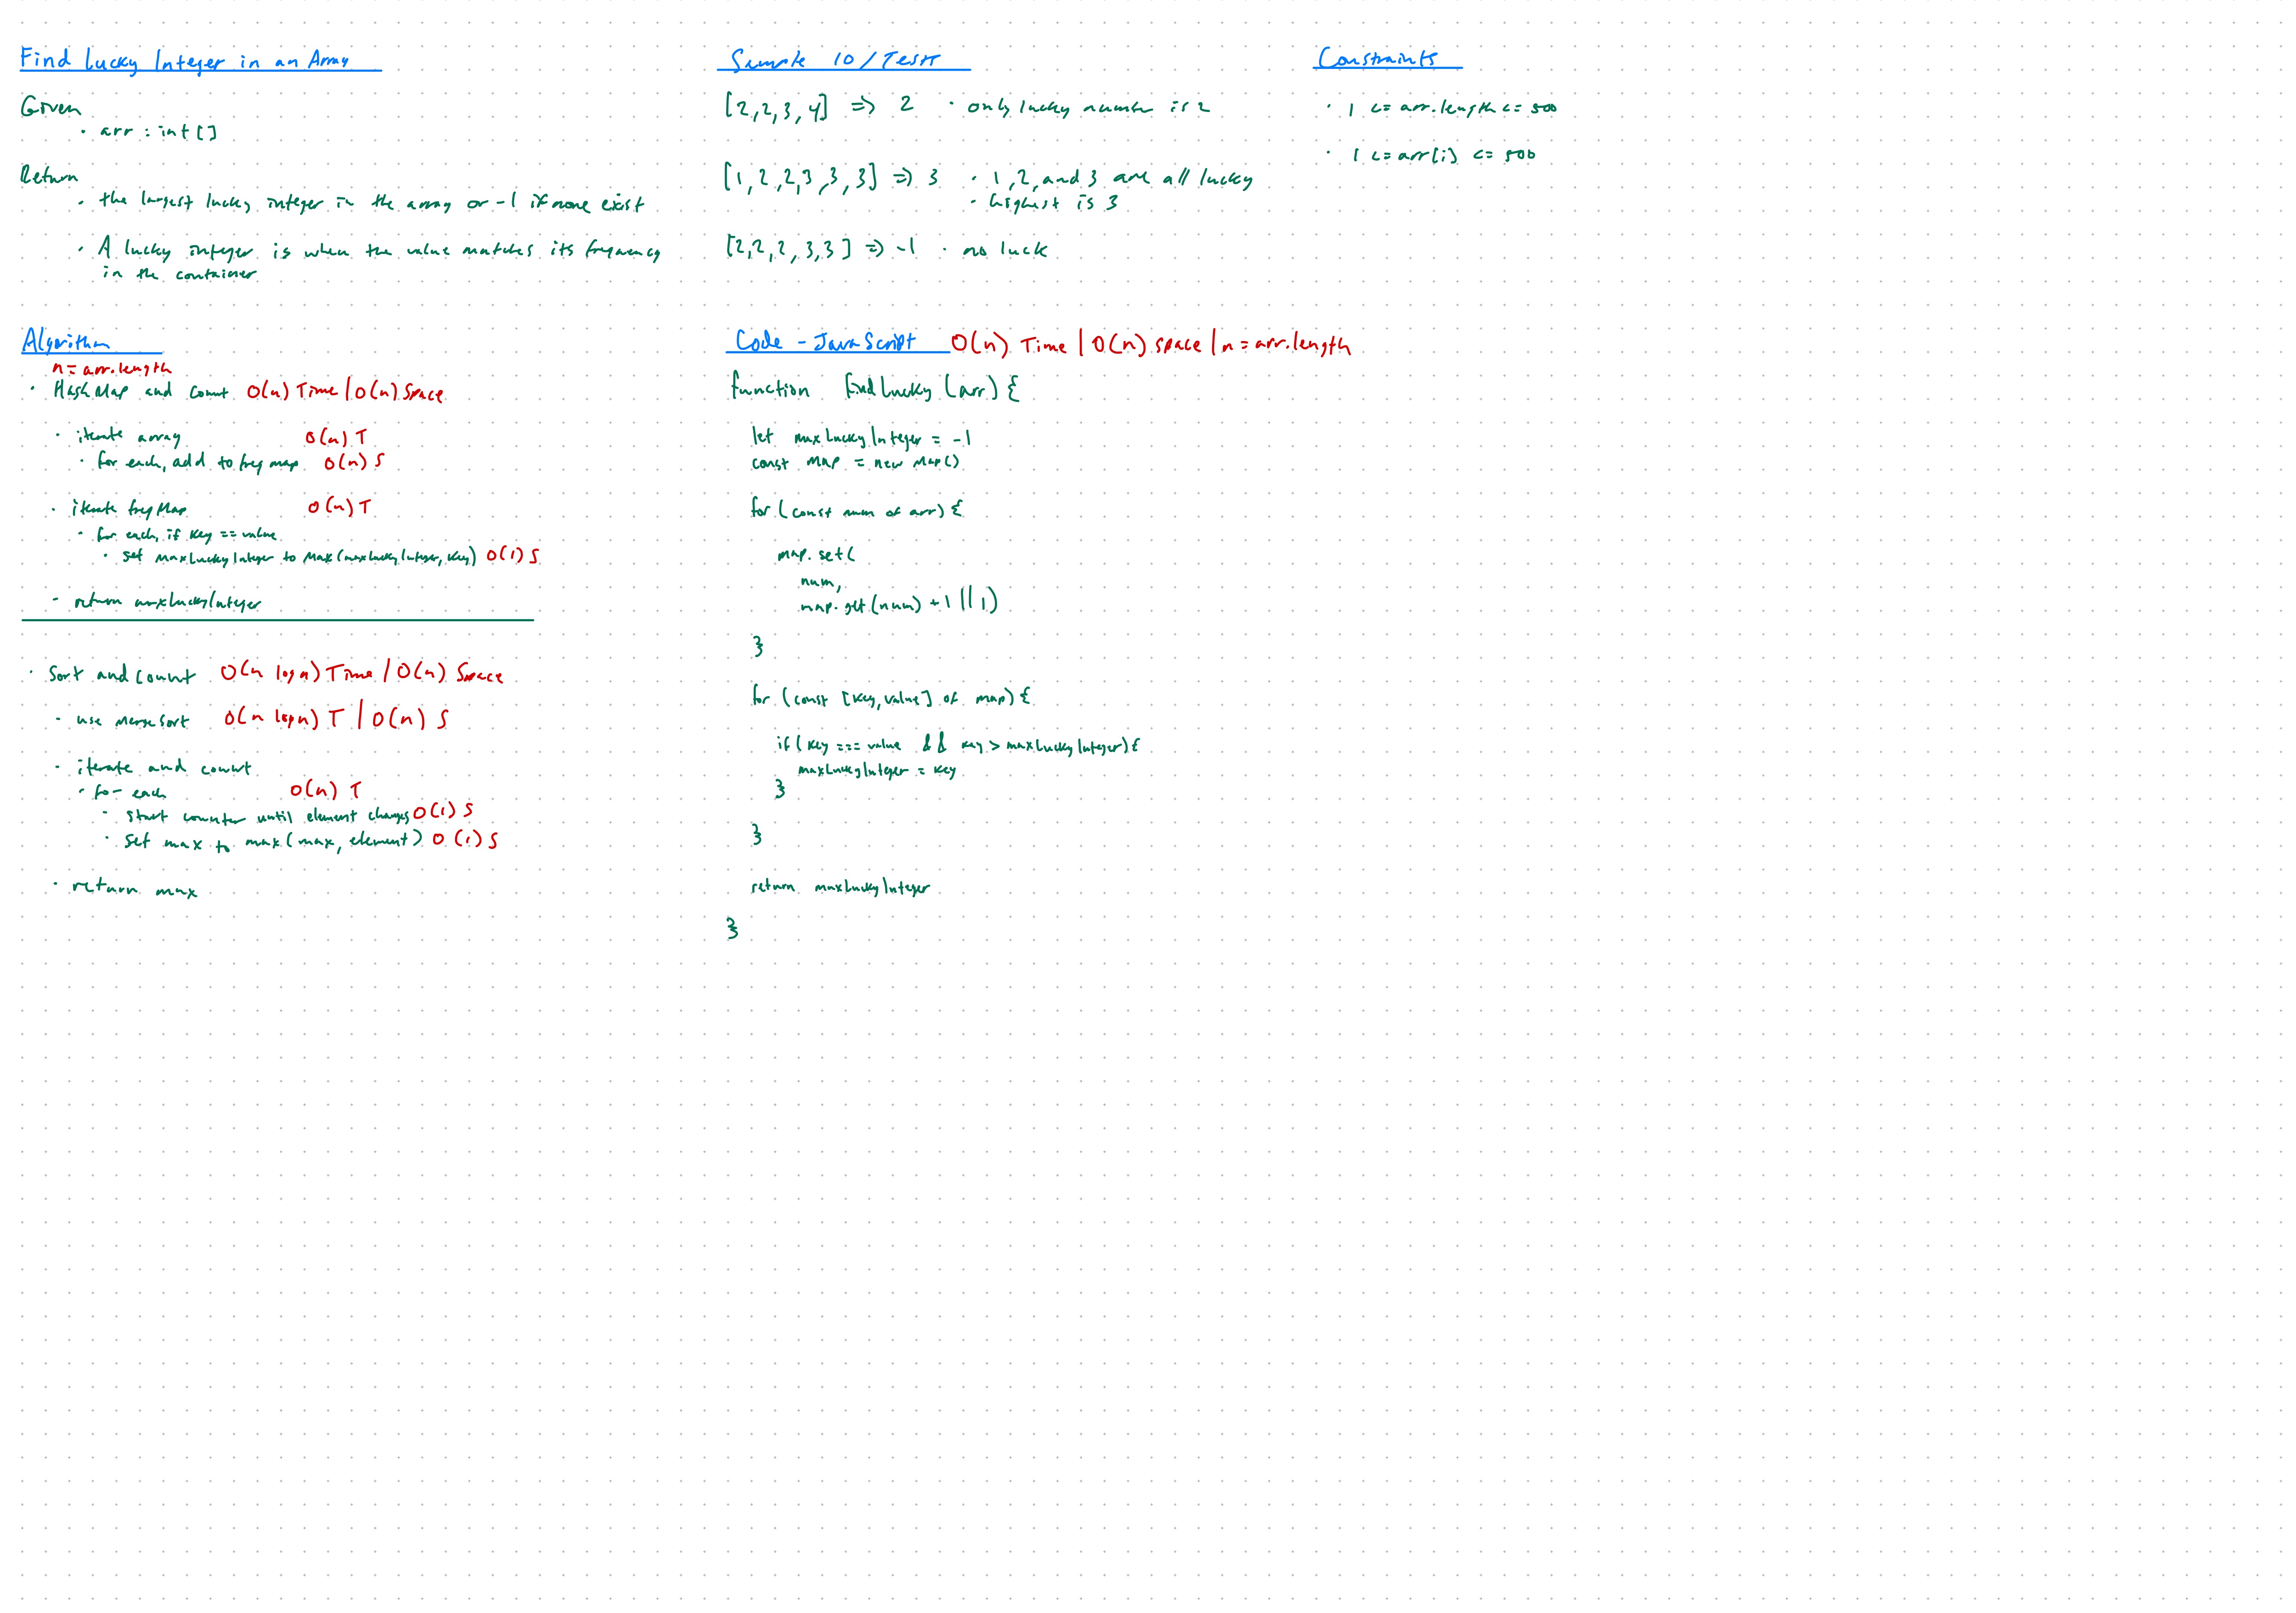 Find Lucky Integer in an Array
Given
· arr : int[]
Return
· the largest lucky integer in the array or -1 if none exist
· A lucky integer is when the value matches its frequency
in the container
Sample IO/Tests
[2,2,3,4] => 2 · only lucky number is 2
[1,2,2,3,3,3] => 3 · 1,2, and 3 are all lucky
· highest is 3
[2,2,2,3,3] => -1 · no luck
Constraints
· 1 <= arr.length <= 500
· 1 <= arr[i] <= 500
Algorithm
n = arr.length
· HashMap and Count O(n) Time | O(n) Space
· iterate array O(n) T
· for each, add to freq map O(n) S
· iterate freqMap O(n) T
· for each, if key == value
· set maxLuckyInteger to Max(maxLuckyInteger, key) O(1) S
- return maxLuckyInteger
· Sort and Count O(n log n) Time / O(n) Space
- use MergeSort O(n log n) T | O(n) S
· iterate and count
· for each O(n) T
- start counter until element changes O(1) S
· set max to max(max, element) O(1) S
· return max
Code - JavaScript O(n) Time | O(n) space | n = arr.length
function findLucky(arr) {
let maxLuckyInteger = -1
const map = new Map()
for (const num of arr) {
map.set(
num,
map.get(num) + 1 || 1)
}
for (const [key, value] of map) {
if (key === value && key > maxLuckyInteger) {
maxLuckyInteger = key
}
}
return maxLuckyInteger
}